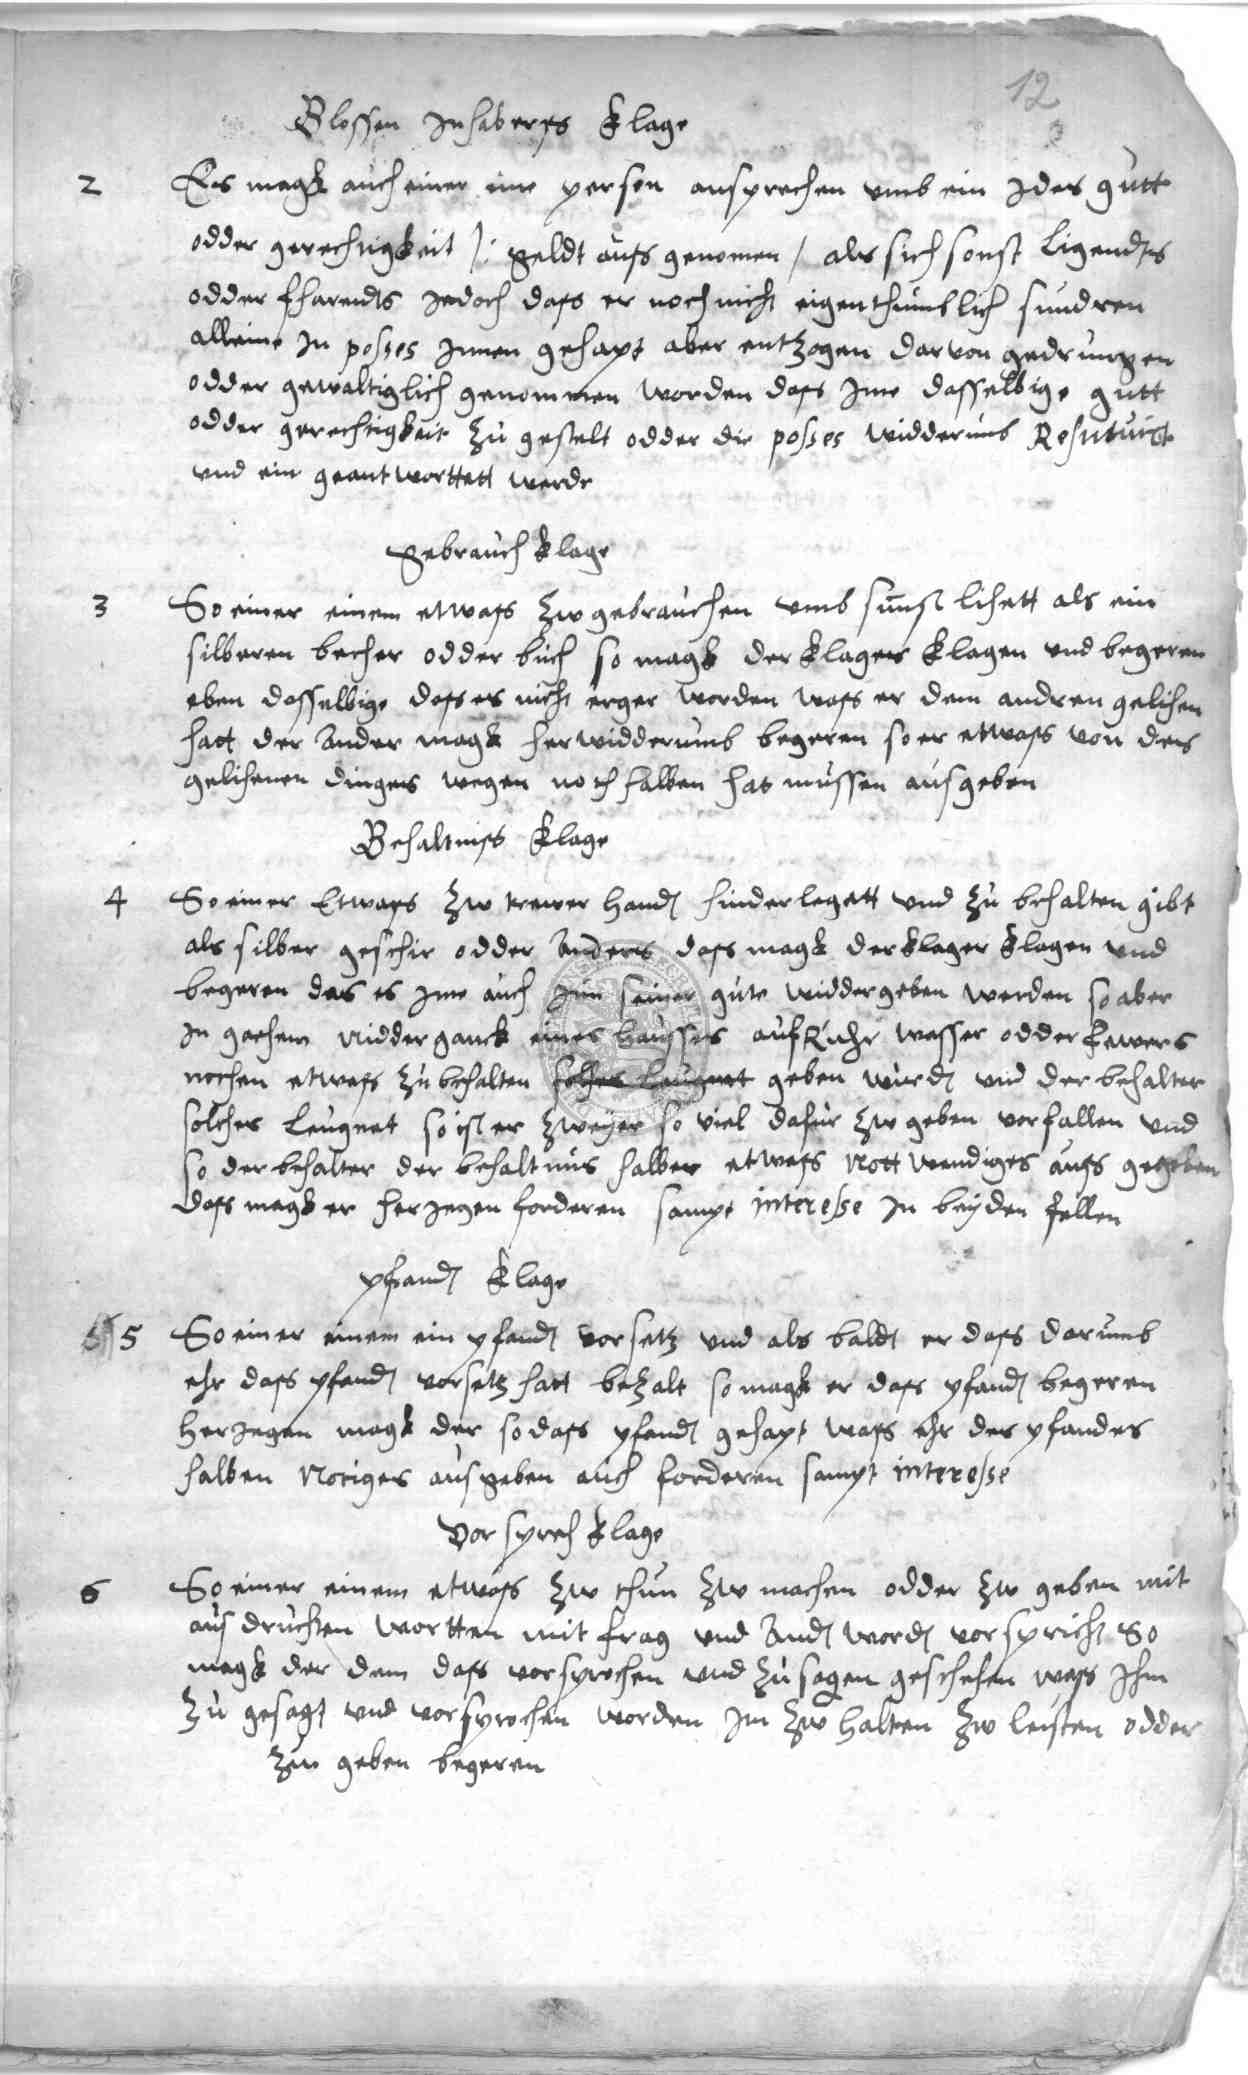 12
Blossen Inhabers klage
2 Es magk auch einer eine person ansprechen vmb ein Ides gutt
odder gerechtigkeit /: geldt aufs genomen / als sich sonst ligendts
odder fharendts Jedoch dass er noch nicht eigenthumblich sundren
alleine In posses Innen gehapt aber entzogen darvon gedrungen
odder gewaltiglich genommen worden dass Ime dasselbige gutt
odder gerechtigkeit zu gestelt odder die posses widderumb Restituirt
vnd ein geantworttett werde
gebrauch klage
3 So einer einem etwass zw gebrauchen vmb sunst lihett als ein
silberen becher odder buch so magk der klager klagen vnd begeren
eben dasselbige dass es nicht erger worden wass er dem andren gelihen
hatt der Ander magk herwidderumb begeren so er etwass von des
gelihenen dinges wegen noch halben hat mussen ausgeben
Behaltniss klage
4 So einer Etwass zw trewer handt hinderlegett vnd zu behalten gibt
als silber geschir odder Anders dass magk der klager klagen vnd
begeren das es Ime auch Inn seiner gute widdergeben werden so aber
In gaehem nidderganck eines haussses aufRuhr wasser odder fewers
nochen etwass zu behalten solches leugnet geben wurdt vnd der behalter
solches leugnet so ist er zweyer so viel dafur zw geben vorfallen vnd
so der behalter der behaltnus halber etwass nottwendiges aufs gegeben
dass magk er herjegen forderen sampt interesse In beyden fellen
pfandt klage
5 So einer einem ein pfandt vorsetz vnd als baldt er dass darumb
ehr dass pfandt vorsetz hatt bezalt so magk er dass pfandt begeren
herjegen magk der so dass pfandt gehapt wass ehr des pfandes
halben notiges ausgeben auch forderen sampt interesse
Vorsprech klage
6 So einer einem etwass zw thun zw machen odder zw geben mit
ausdruckten wortten mit frag vnd Andtwordt vorspricht So
magk der dem dass vorsprochen vnd zusagen geschehen wass Ihm
zu gesagt vnd vorsprochen worden Im zw halten zw leisten odder
zw geben begeren